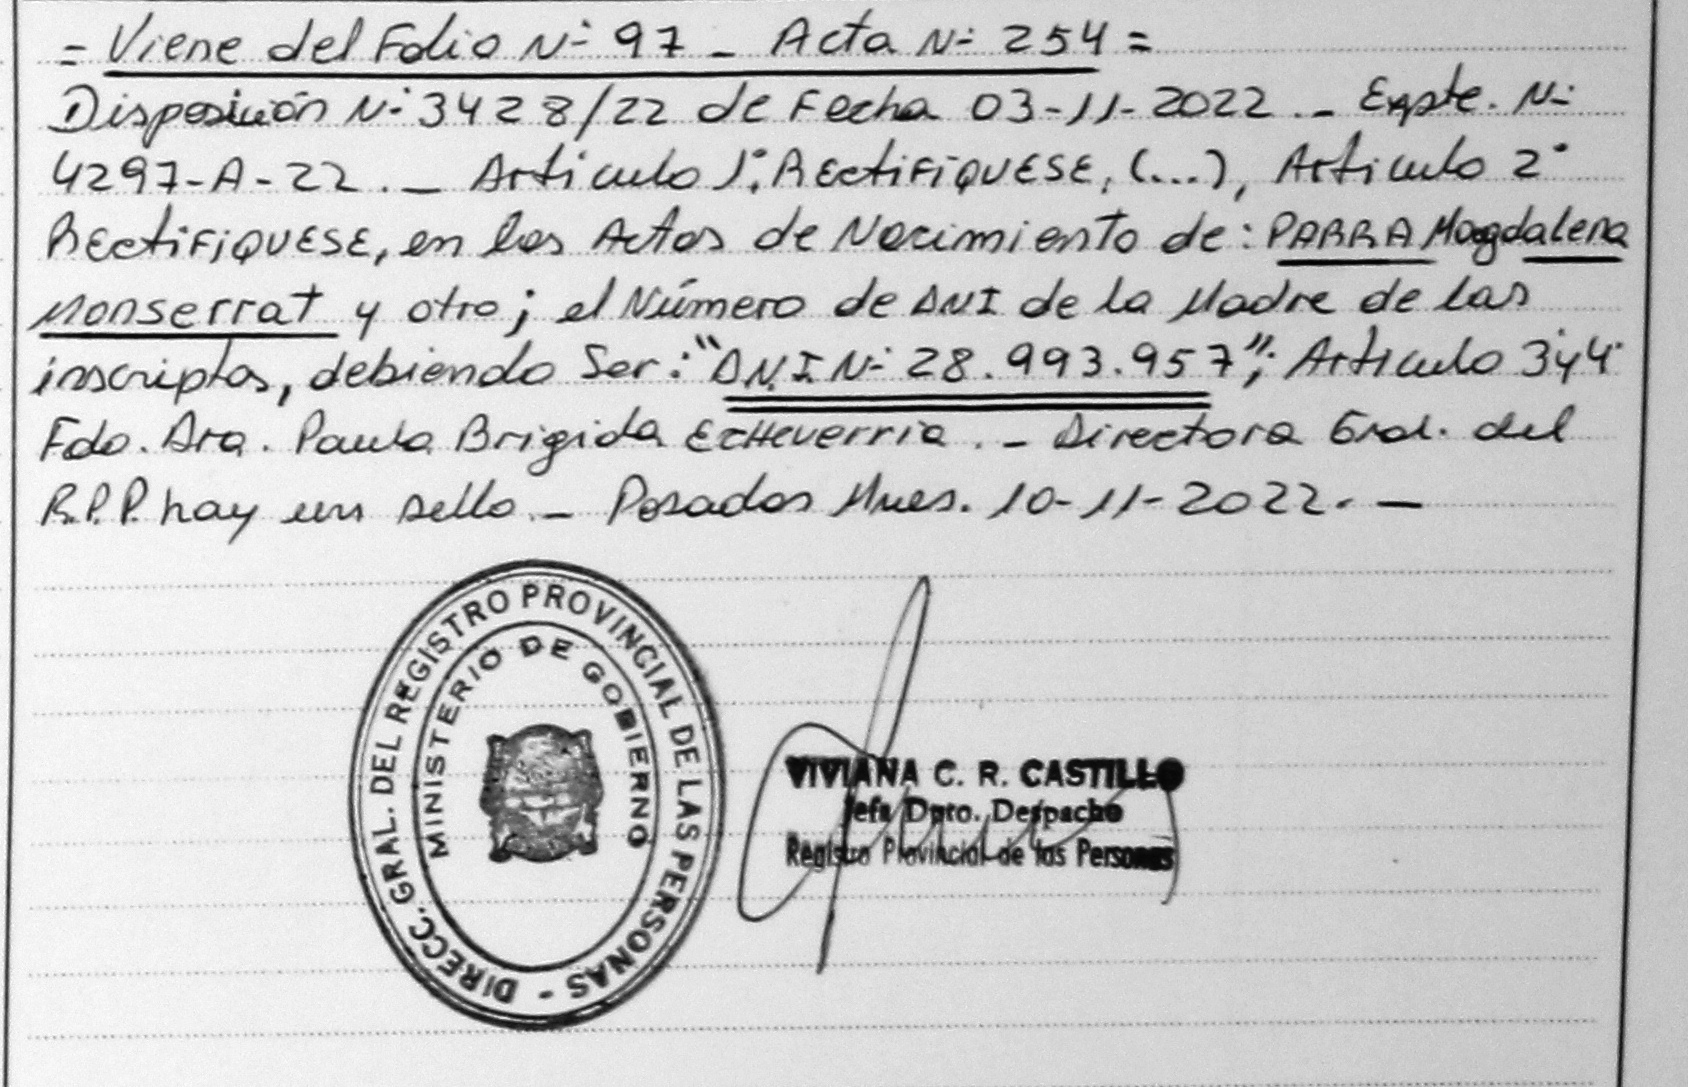 = Viene del Folio Nº 97 - Acta Nº 254 =
Disposición Nº 3428/22 de Fecha 03-11-2022. - Expte. Nº
4297-A-22. - Artículo 1º: RECTIFIQUESE, (...), Artículo 2º
RECTIFIQUESE, en las Actas de Nacimiento de: PARRA Magdalena
Monserrat y otro; el Número de DNI de la Madre de las
inscriptas, debiendo Ser: "D.N.I Nº 28.993.957"; Artículo 3º y 4º
Fdo. Dra. Paula Brigida Echeverria. - Directora Gral. del
R.P.P. hay un sello. - Posadas Mnes. 10-11-2022. -
DIRECC. GRAL. DEL REGISTRO PROVINCIAL DE LAS PERSONAS -
MINISTERIO DE GOBIERNO
VIVIANA C. R. CASTILLO
Jefa Dpto. Despacho
Registro Provincial de las Personas